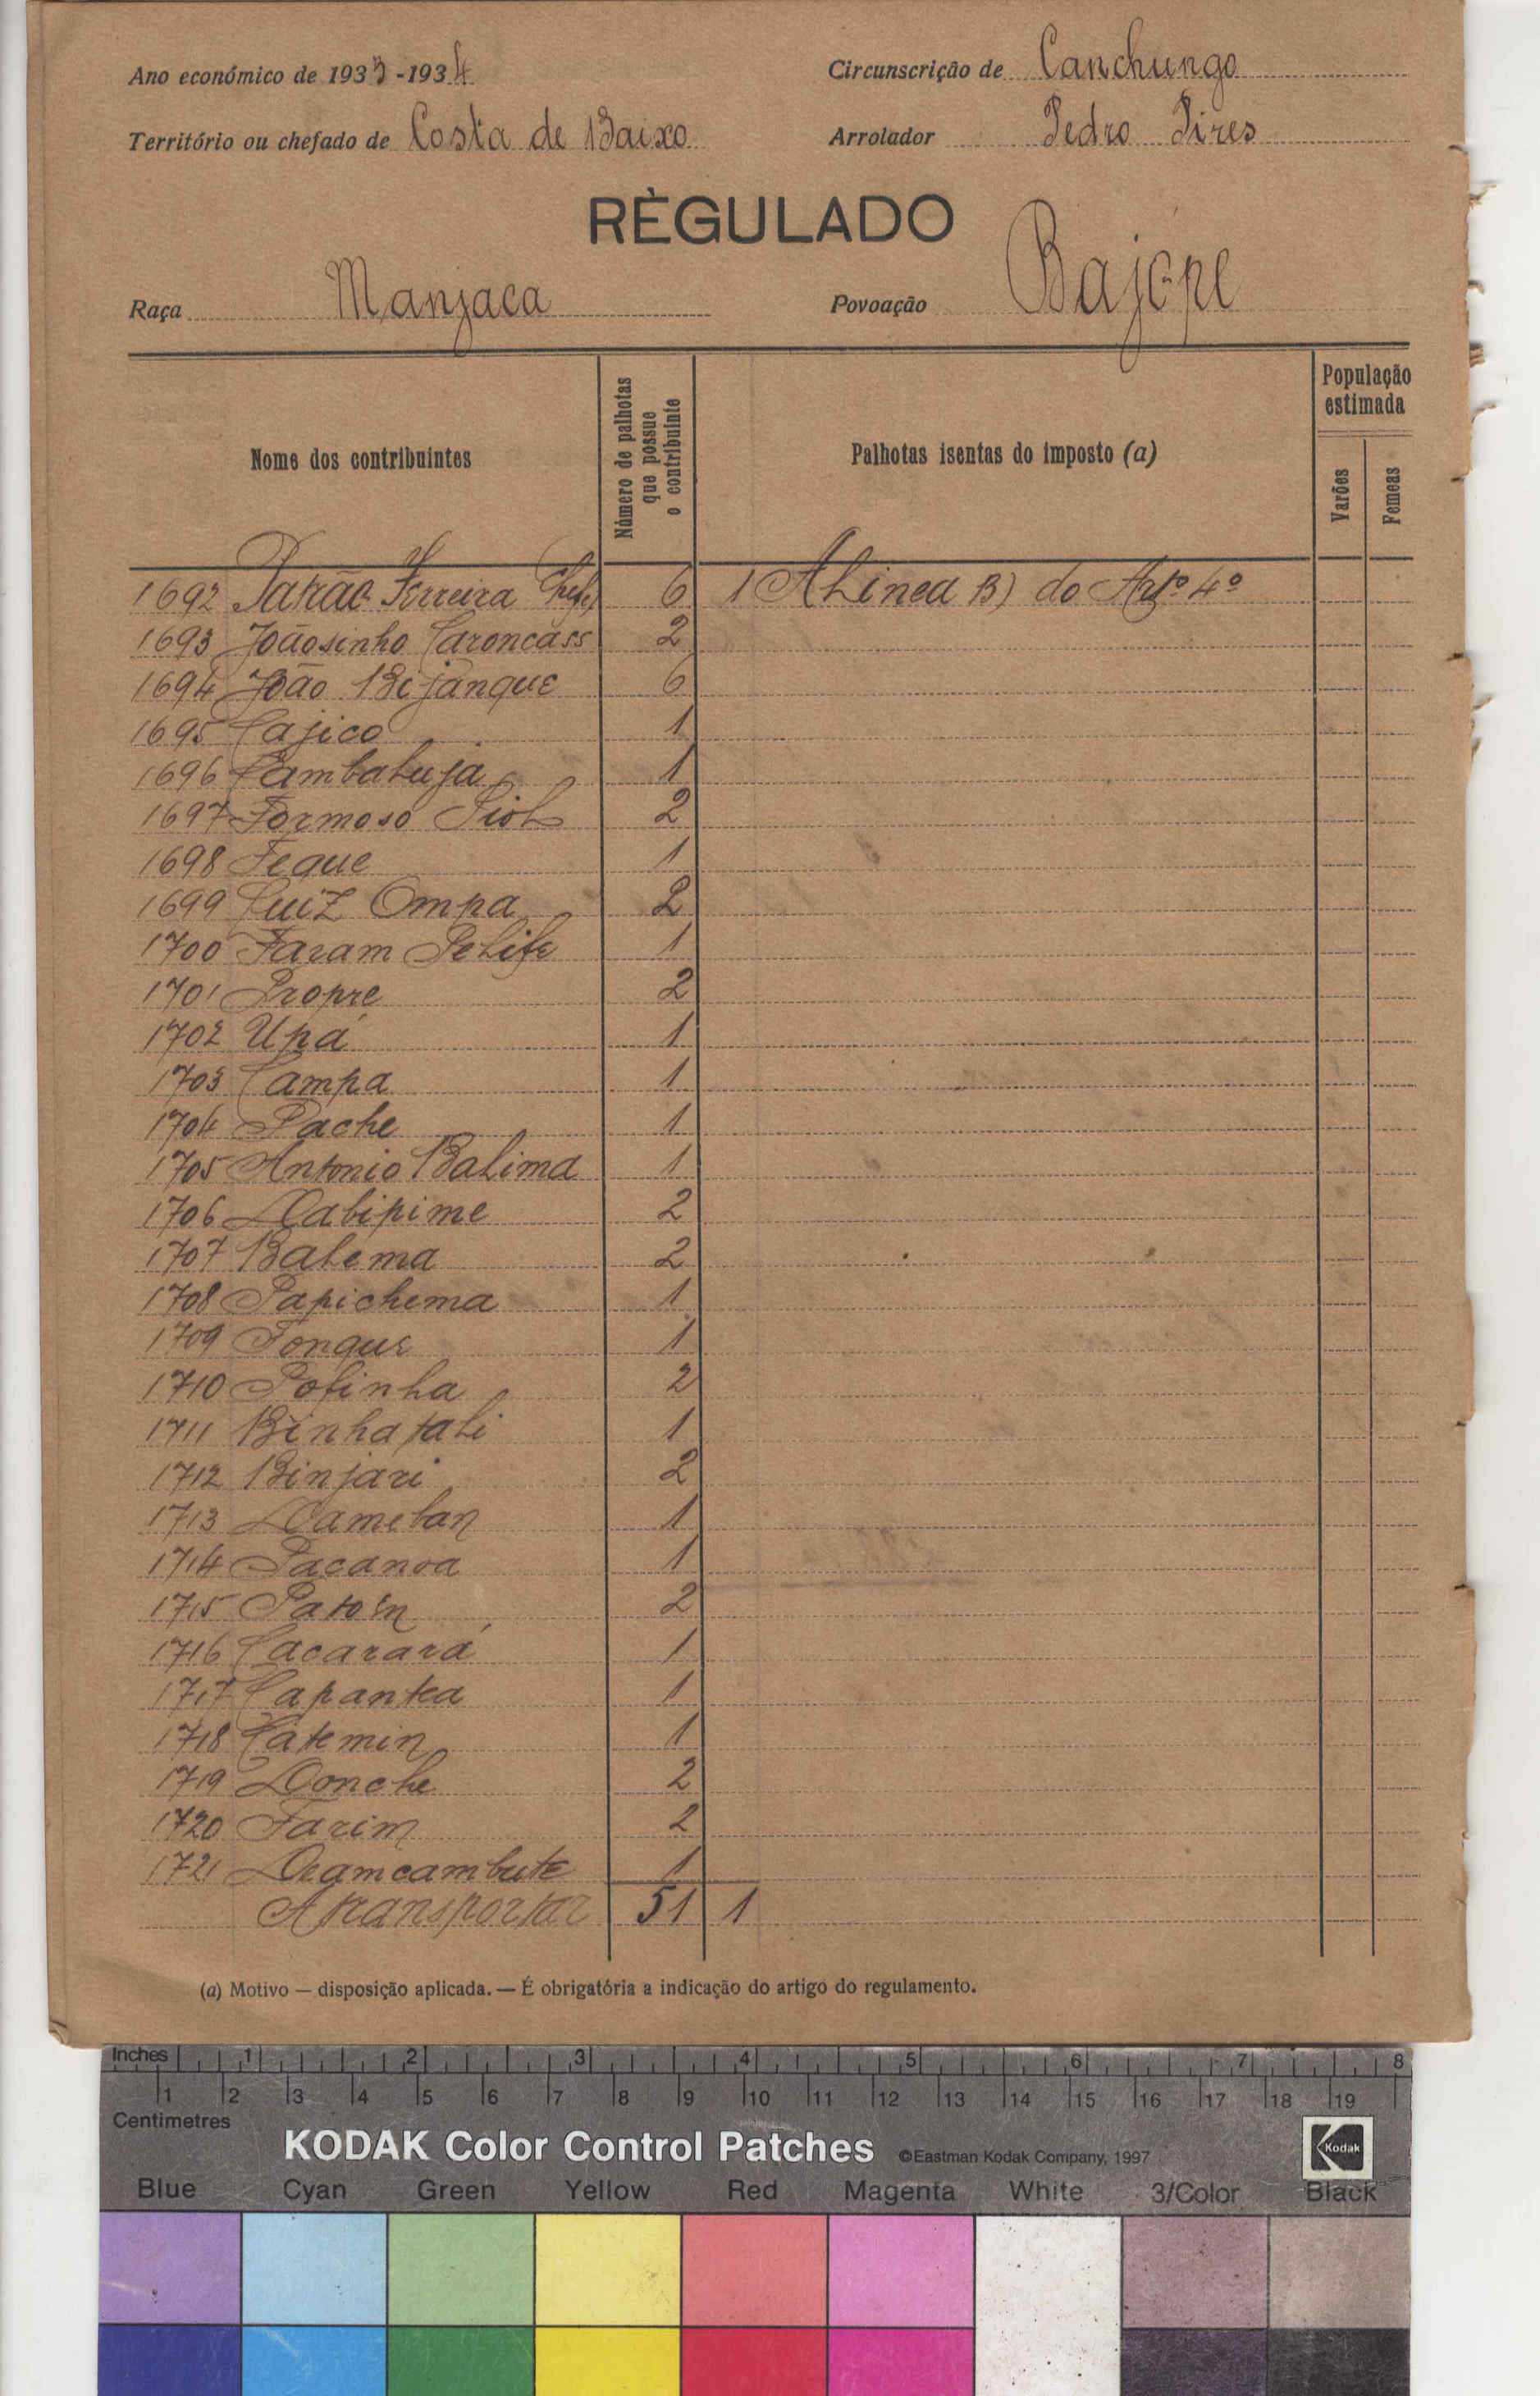 Ano económico de 1933-1934 Circunscrição de Canchungo
Território ou chefado de Costa de Baixo Arrolador Pedro Pires
RÈGULADO
Raça Manjaca Povoação Bajope
Nome dos contribuintes
Número de palhotas
que possue
o contribuinte
Palhotas isentas do imposto (a)
População
estimada
Varões
Femeas
1692 Patrão Ferreira Chefe 6 1 Alinea B) do Artº 4º
1693 Joãosinho Caroncass 2
1694 João Bijanque 6
1695 Cajico 1
1696 Cambaluja 1
1697 Formoso Piol 2
1698 Feque 1
1699 Luiz Ompa 2
1700 Faram Pelife 1
1701 Propre 2
1702 Upá 1
1703 Campa 1
1704 Pache 1
1705 Antonio Balima 1
1706 Dabipime 2
1707 Balema 2
1708 Papichema 1
1709 Fongue 1
1710 Pofinha 2
1711 Binhatali 1
1712 Binjari 2
1713 Damelan 1
1714 Pacanoa 1
1715 Patoin 2
1716 Cacarará 1
1717 Capantea 1
1718 Catemin 1
1719 Donche 2
1720 Farim 2
1721 Degmcambute 1
A transportar 51 1
(a) Motivo — disposição aplicada. — É obrigatória a indicação do artigo do regulamento.
Inches 1 2 3 4 5 6 7 8
1 2 3 4 5 6 7 8 9 10 11 12 13 14 15 16 17 18 19
Centimetres
KODAK Color Control Patches ©Eastman Kodak Company, 1997 Kodak
Blue Cyan Green Yellow Red Magenta White 3/Color Black